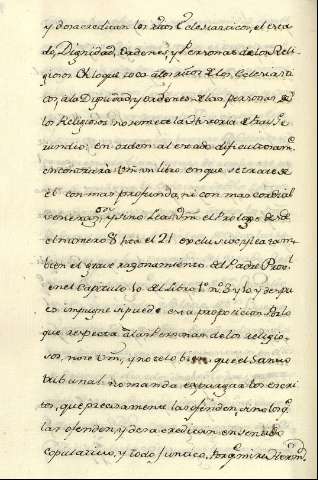 y desacreditan los ritos Eclesiasticos, el esta
do, Dignidad, Ordenes, y Personas de los Reli
giosos. En lo que toca a los ritos de los Eclesiasti
cos, a la Dignidad y ordenes de las personas de
los Religiosos no se mete la Historia de Fray Ge
rundio; en orden al estado dificultosam.te
encontrará Vm. un libro en que se trate de
él con mas profunda, ni con mas cordial
veneraz.on, y sino Lea Vm. el Prologo desde
el numero 8 hta el 21 exclusive, y lea tam
bien el grave razonamiento del Padre Prov.l
en el Capitulo 10 del Libro 1.º n.º 8 y 10 y despu
es impugne si puede esta proposicion. Por lo
que respecta a las Personas de los religio
sos, note Vm., y notelo bien que el Santo
tribunal no manda expurgar los escri
tos, que precisamente las ofenden, sino los q.e
las ofenden, y desacreditan en sentido
copulativo, y todo junto,